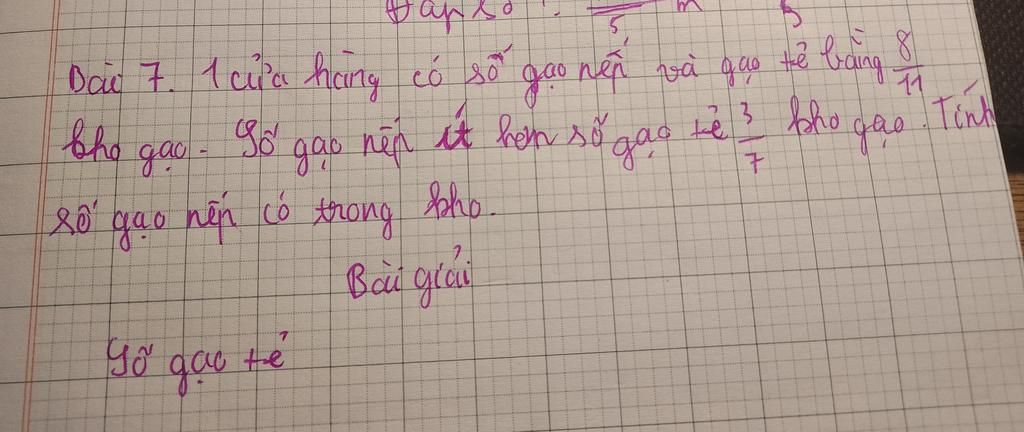 Đáp số : — m
5
Bài 7. 1 cửa hàng có số gạo nếp và gạo tẻ bằng 8/11
kho gạo. Số gạo nếp ít hơn số gạo tẻ 3/7 kho gạo. Tính
số gạo nếp có trong kho.
Bài giải
Số gạo tẻ